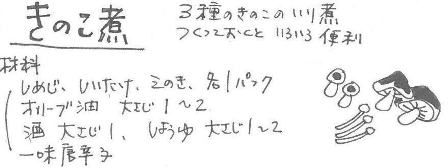 きのこ煮
3種のきのこのいり煮
つくっておくと いろいろ便利
材料
しめじ、しいたけ、えのき、各1パック
オリーブ油 大さじ1〜2
酒 大さじ1、しょうゆ 大さじ1〜2
一味唐辛子